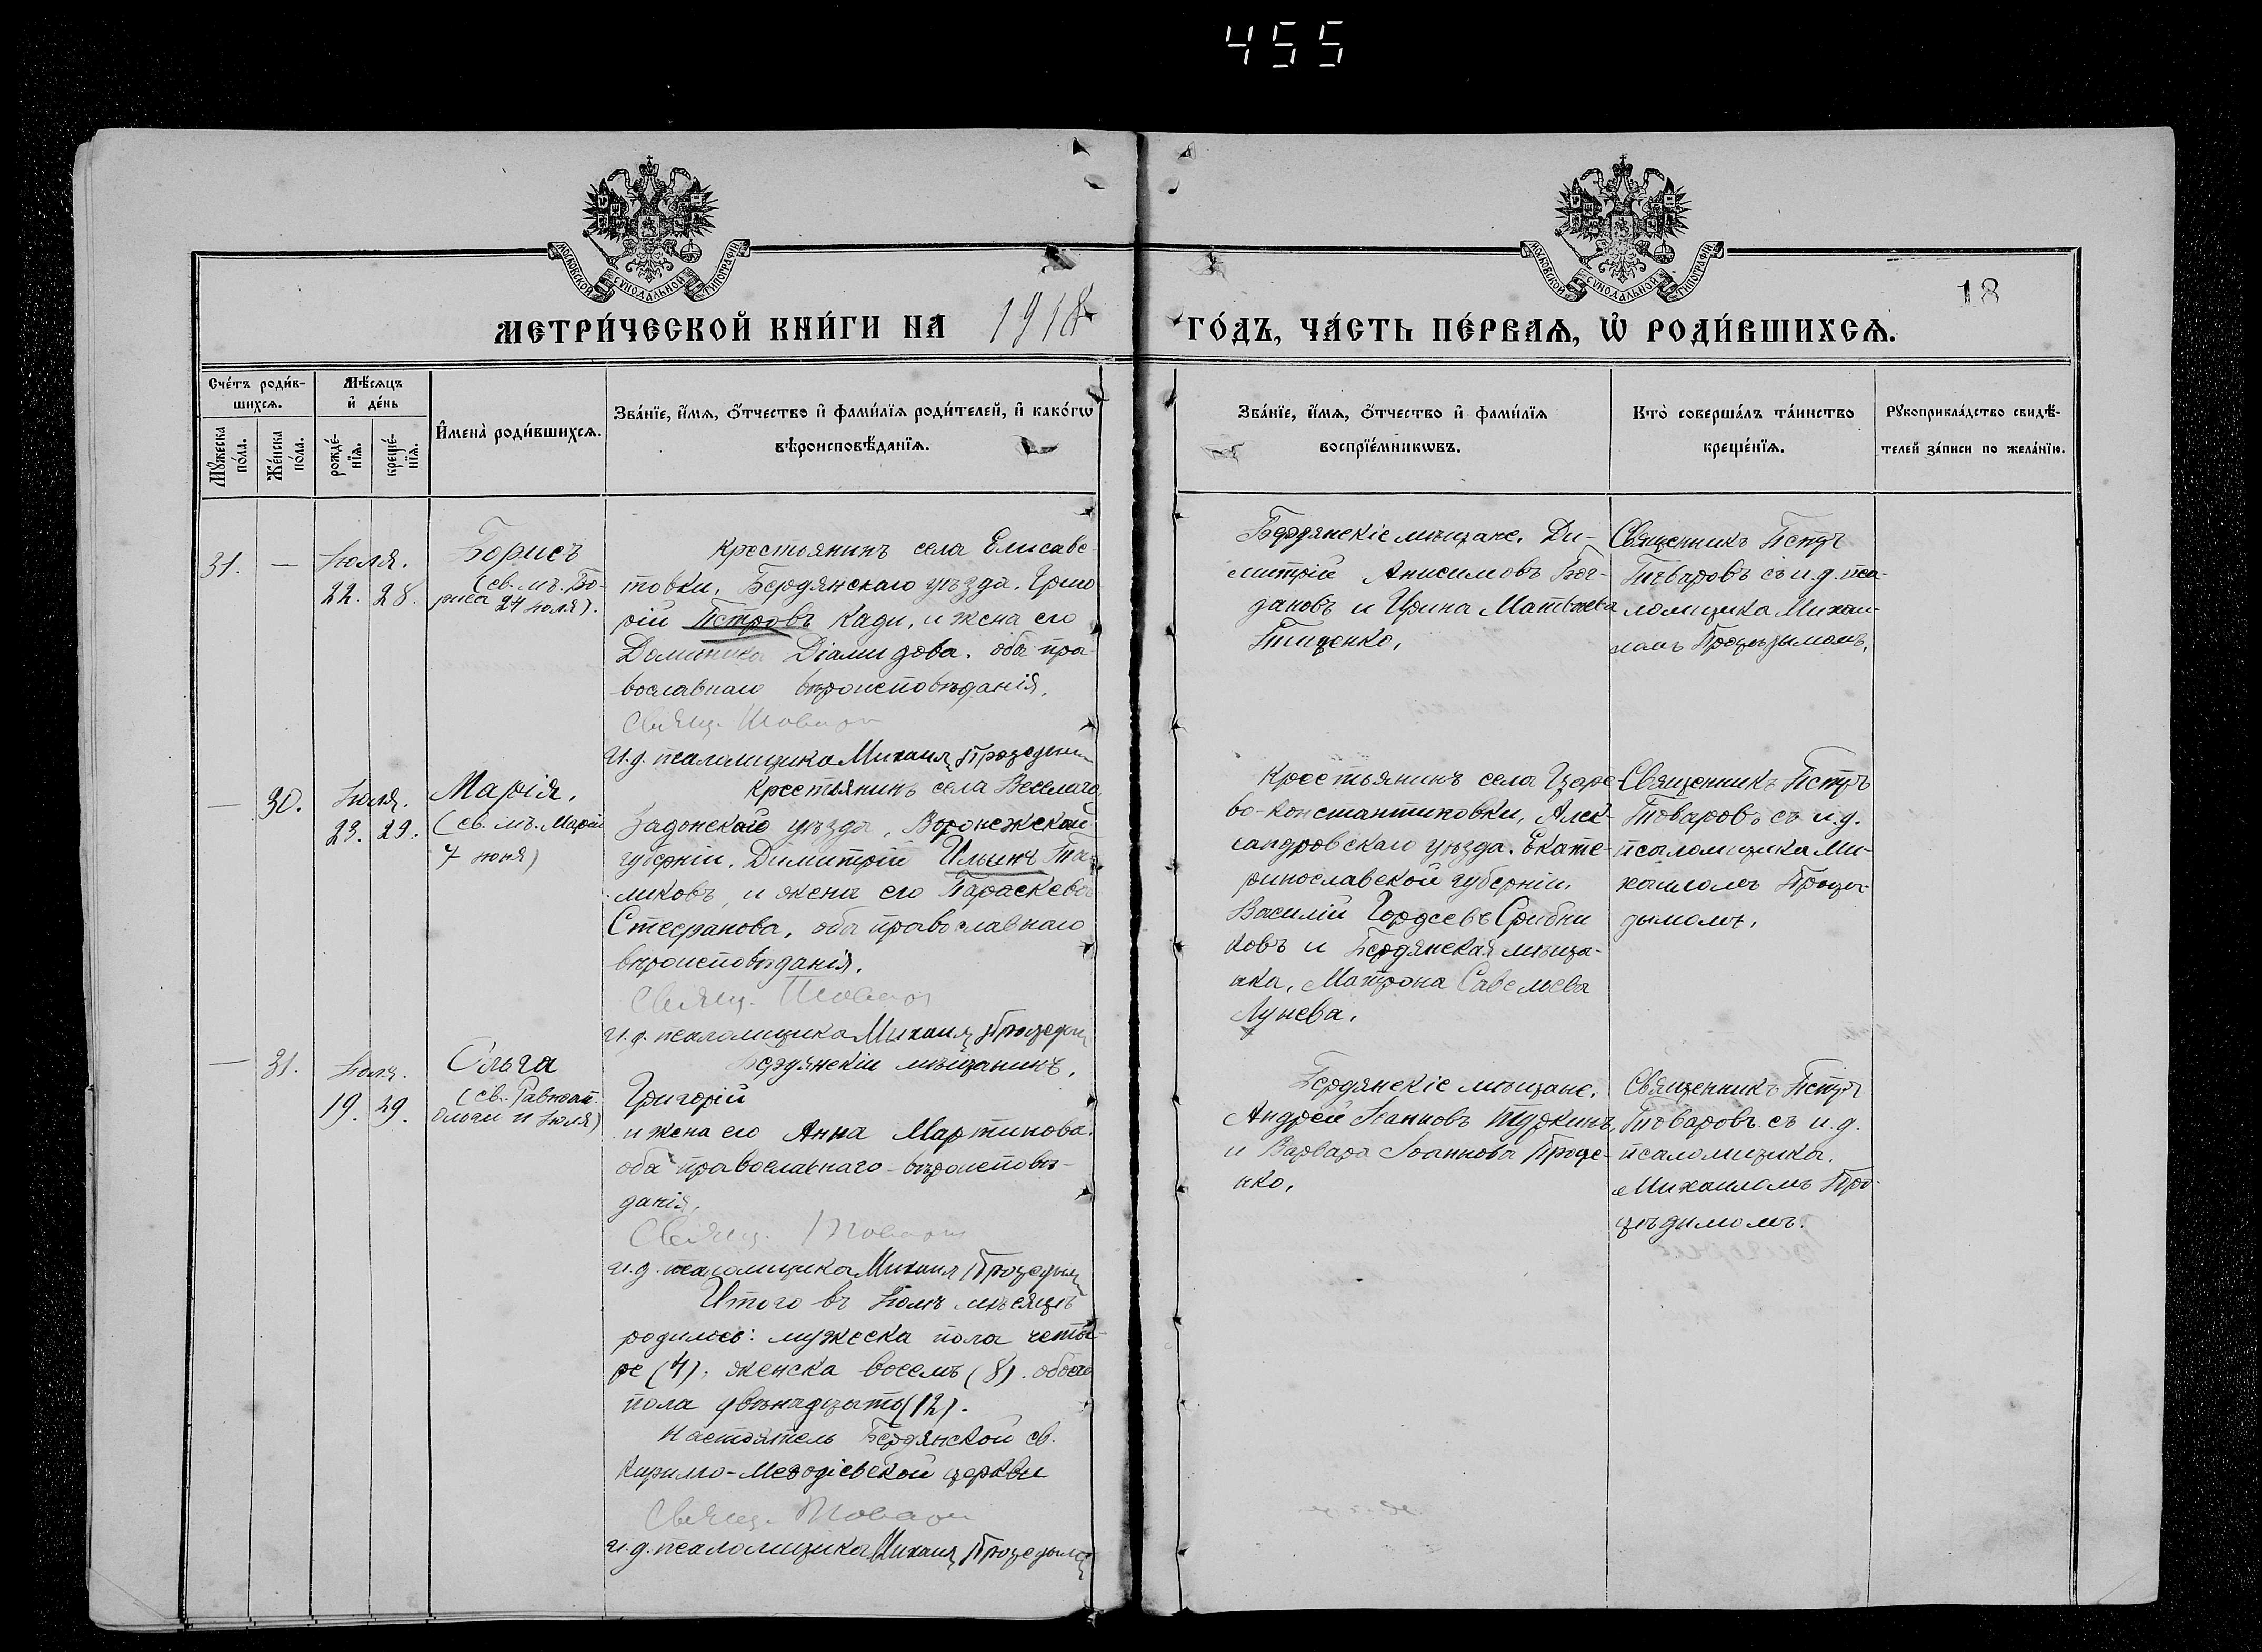 455
МОСКОВСКОЙ СѴНОДАЛЬНОЙ ТИПОГРАФІИ
МОСКОВСКОЙ СѴНОДАЛЬНОЙ ТИПОГРАФІИ
18
МЕТРИ́ЧЕСКОЙ КНИ́ГИ НА 1918 ГО́ДЪ, ЧА́СТЬ ПЕ́РВАѦ, Ѡ҆ РОДИ́ВШИХСѦ.
Сче́тъ роди́в-
шихсѧ.
Мꙋ́жеска
по́ла.
Же́нска
по́ла.
Мѣ́сѧцъ
и҆ де́нь
рожде́-
нїѧ.
креще́-
нїѧ.
И҆мена̀ роди́вшихсѧ.
Зва́нїе, и҆́мѧ, ѻ҆́тчество и҆ фами́лїѧ роди́телей, и҆ како́гѡ
вѣроисповѣ́данїѧ.
Зва́нїе, и҆́мѧ, ѻ҆́тчество и҆ фами́лїѧ
воспрїе́мникѡвъ.
Кто̀ соверша́лъ та́инство
креще́нїѧ.
Рꙋкоприкла́дство свидѣ́-
телей за́писи по жела́нїю.
31.
—
Іюля.
22. 28.
Борисъ
(св. мч. Бо-
риса 24 іюля).
Крестьянинъ села Елисаве-
товки, Бердянскаго уѣзда. Григо
рій Петровъ Кади, и жена его
Домника Діамидова. оба пра
вославнаго вѣроисповѣданія.
Свящ. Товаровъ
И.д. псаломщика Михаилъ
Бердянскіе мѣщане, Ди-
митрій Анисимовъ Бог-
дановъ и Ирина Матвѣева
Тищенко,
Священникъ Петръ
Товаровъ съ и.д. пса-
ломщика Михаи-
ломъ
—
30.
Іюля.
23. 29.
Марія.
(св. мч. Маріи
7 іюня)
Крестьянинъ села Веселаго
Задонскаго уѣзда, Воронежской
губерніи, Димитрій Ильинъ
ликовъ, и жена его Параскева
Стефанова, оба православнаго
вѣроисповѣданія.
Свящ. Товаровъ
И.д. псаломщика Михаилъ
Крестьянинъ села Царе
во-Константиновки, Алек-
сандровскаго уѣзда. Екате-
ринославской губерніи.
Василій Гордеевъ
ковъ и Бердянская мѣща-
нка, Матрона Савельева
Лунева.
Священникъ Петръ
Товаровъ съ и.д.
псаломщика Ми-
хаиломъ
дымомъ.
—
31.
Іюля.
19. 29.
Ольга
(св. Равноап.
Ольги 11 іюля)
Бердянскій мѣщанинъ,
Григорій
и жена его Анна Мартинова.
оба православнаго вѣроисповѣ-
данія.
Свящ. Товаровъ
И.д. псаломщика Михаилъ
Бердянскіе мѣщане.
Андрей Іоанновъ Туркинъ,
и Варвара Іоаннова Проце-
нко.
Священникъ Петръ
Товаровъ съ и.д.
псаломщика.
Михаиломъ Про-
цѣдымомъ.
Итого въ Іюлѣ мѣсяцѣ
родилось: мужеска пола четы-
ре (4), женска восемь (8). обоего
пола двѣнадцать (12).
Настоятель Бердянской св.
Кирилло-Меѳодіевской церкви
Свящ. Товаровъ
И.д. псаломщика Михаилъ